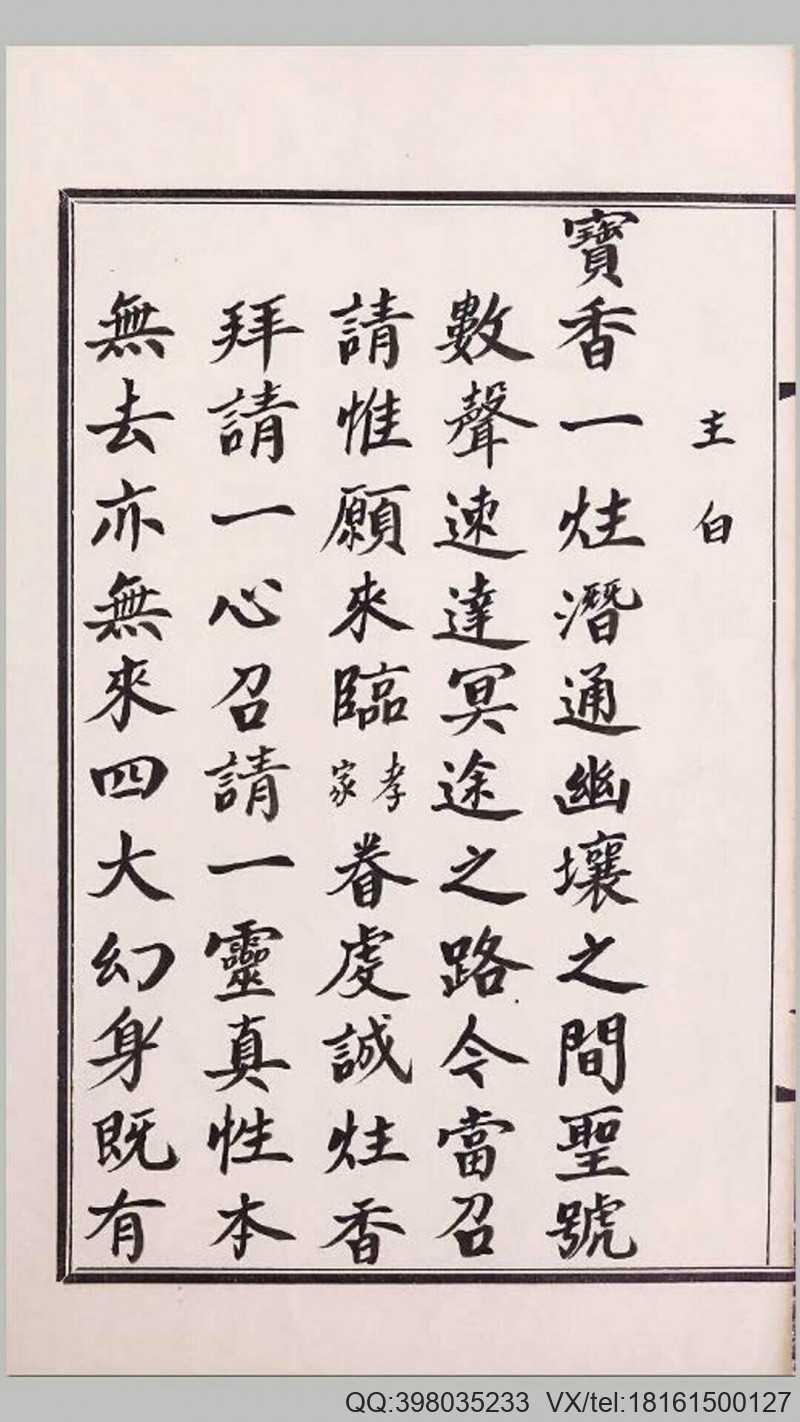 主白
寶香一炷潛通幽壤之間聖號
數聲速達冥途之路今當召
請惟願來臨孝家眷虔誠炷香
拜請一心召請一靈真性本
無去亦無來四大幻身既有
QQ:398035233 VX/tel:18161500127